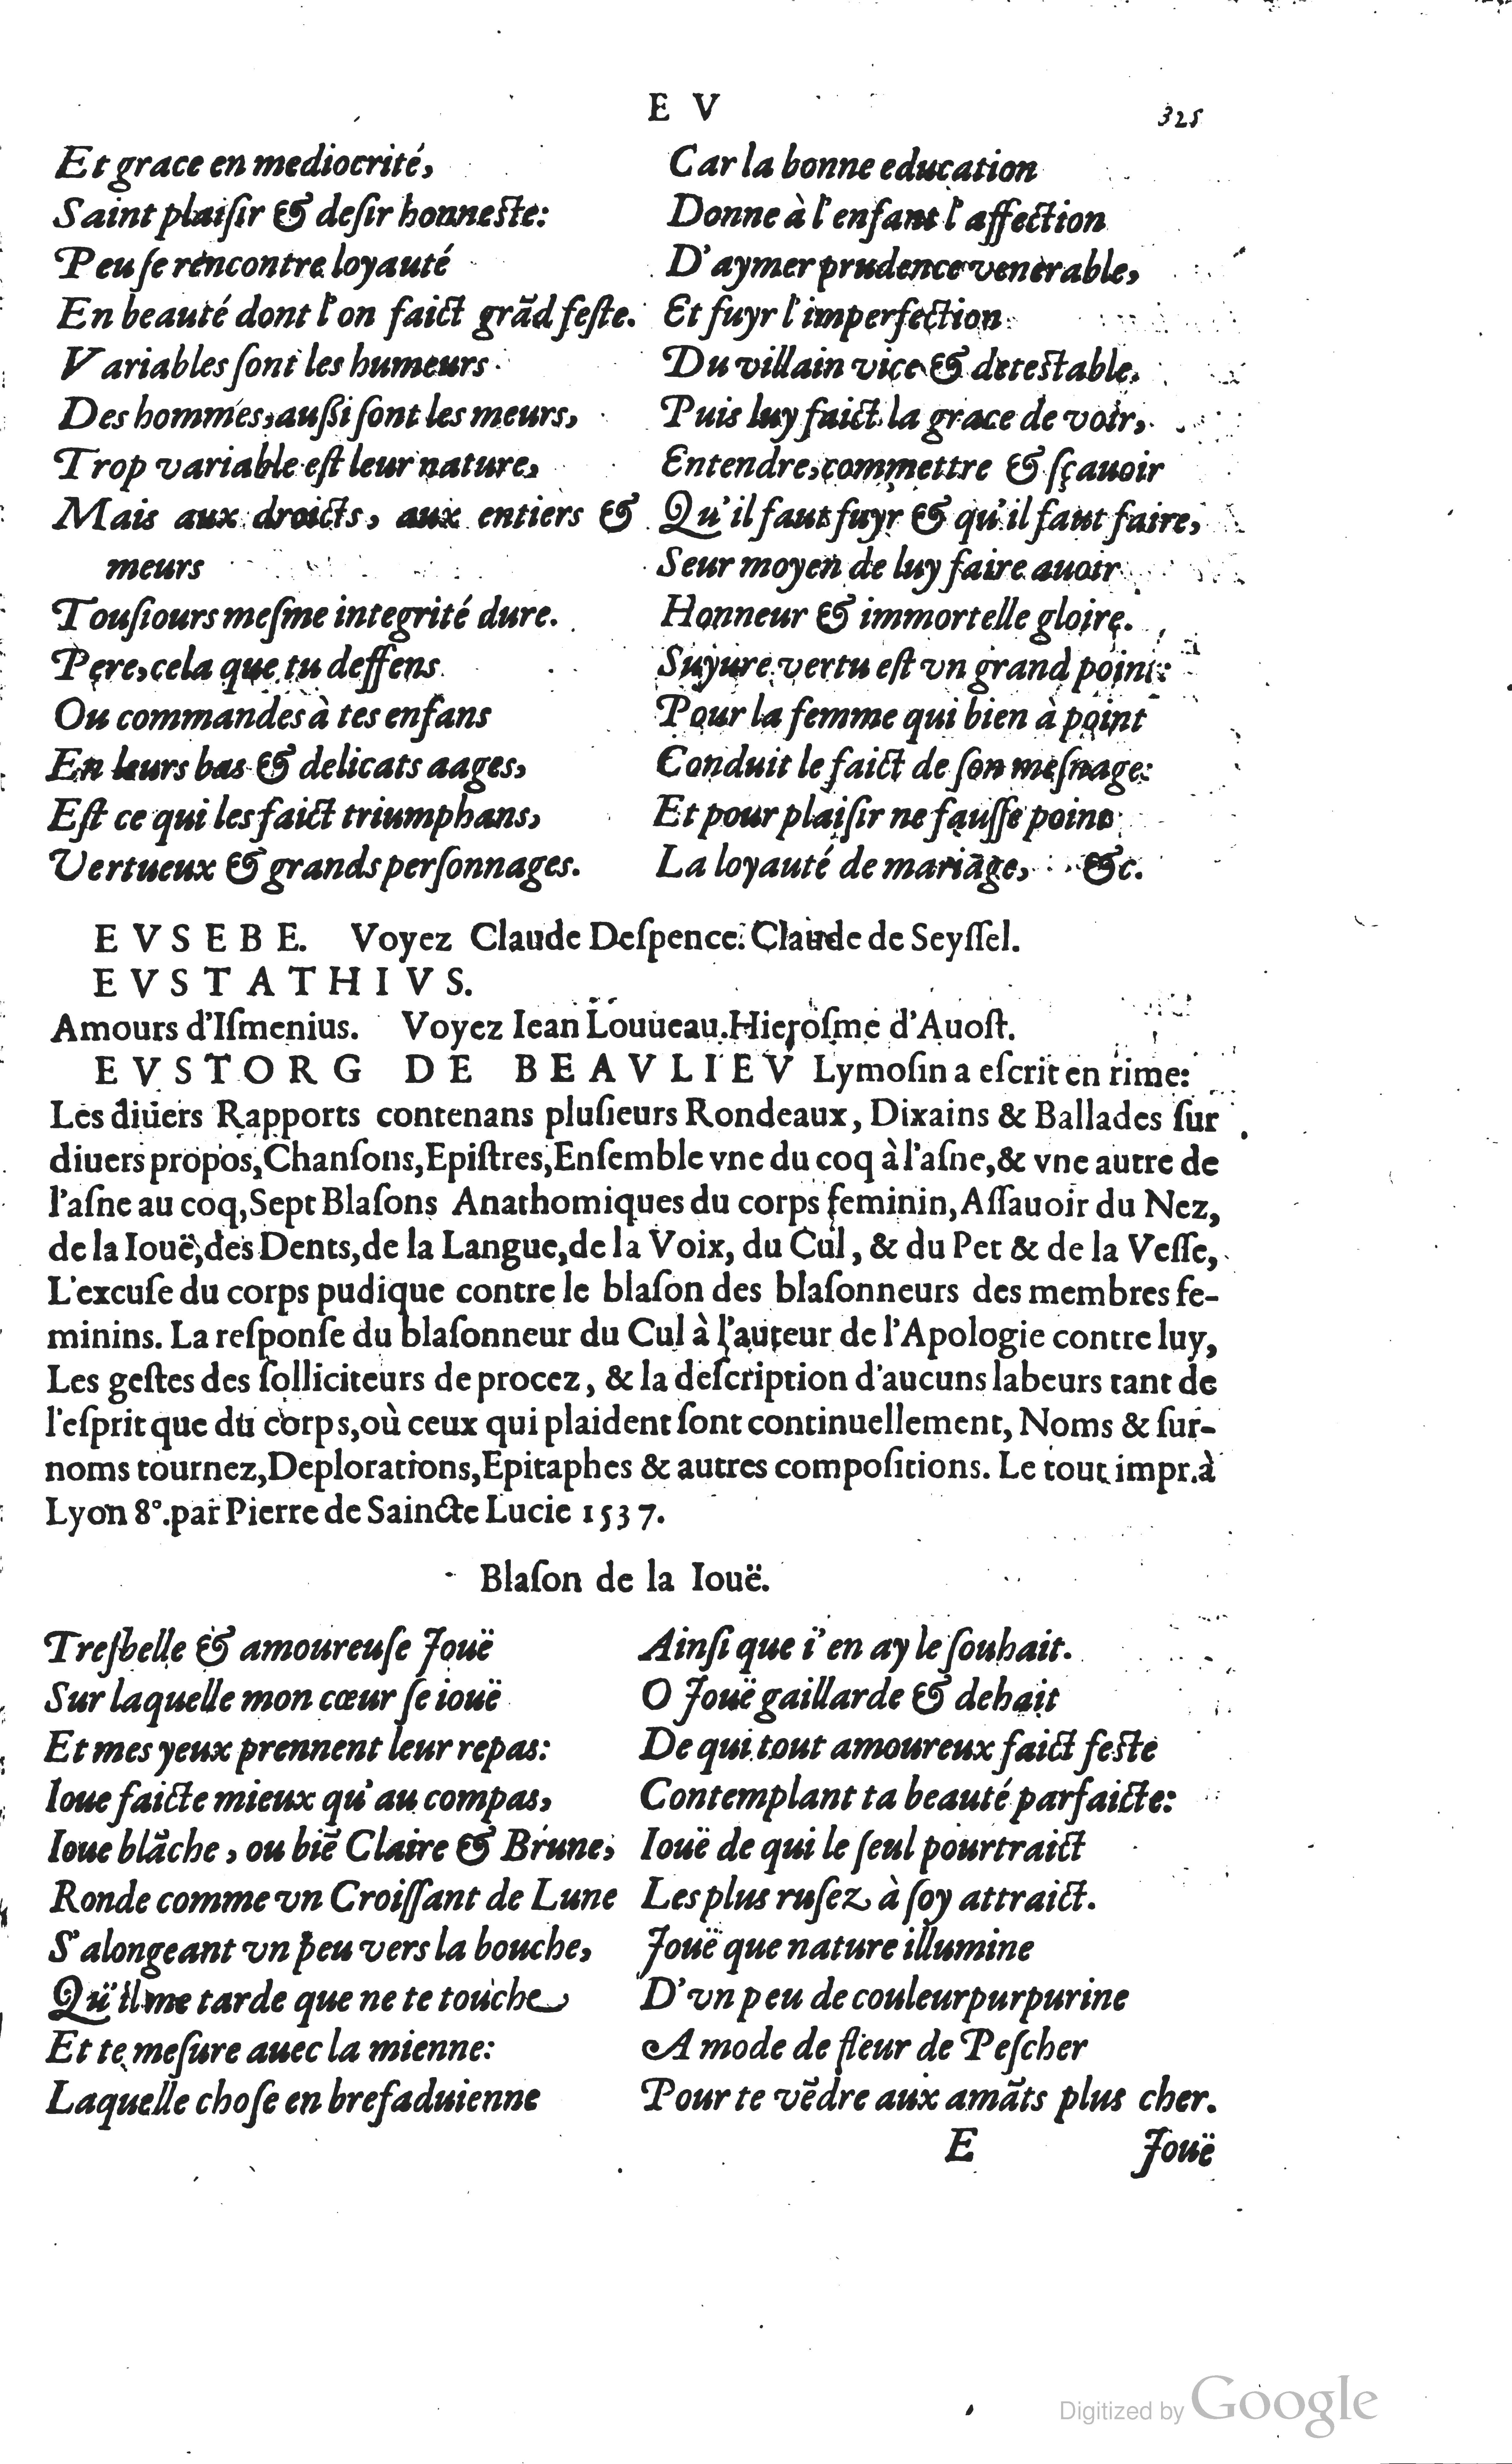 E V
325
Et grace en mediocrité,
Saint plaiſir & deſir honneſte:
Peu ſe rencontre loyauté
En beauté dont l'on faict grãd feſte.
Variables ſont les humeurs
Des hommes, auſſi ſont les meurs,
Trop variable eſt leur nature,
Mais aux droicts, aux entiers &
meurs
Touſiours meſme integrité dure.
Pere, cela que tu deffens
Ou commandes à tes enfans
En leurs bas & delicats aages,
Eſt ce qui les faict triumphans,
Vertueux & grands perſonnages.
Car la bonne education
Donne à l'enfant l'affection
D'aymer prudence venerable,
Et fuyr l'imperfection
Du villain vice & deteſtable.
Puis luy faict la grace de voir,
Entendre, commettre & ſçauoir
Qu'il faut fuyr & qu'il faut faire,
Seur moyen de luy faire auoir
Honneur & immortelle gloire.
Suyure vertu eſt vn grand point:
Pour la femme qui bien à point
Conduit le faict de ſon meſnage:
Et pour plaiſir ne fauſſe poinc
La loyauté de mariage, &c.
EVSEBE. Voyez Claude Deſpence. Claude de Seyſſel.
EVSTATHIVS.
Amours d'Iſmenius. Voyez Iean Louueau. Hieroſme d'Auoſt.
EVSTORG DE BEAVLIEV Lymoſin a eſcrit en rime:
Les diuers Rapports contenans pluſieurs Rondeaux, Dixains & Ballades ſur
diuers propos, Chanſons, Epiſtres, Enſemble vne du coq à l'aſne, & vne autre de
l'aſne au coq, Sept Blaſons Anathomiques du corps feminin, Aſſauoir du Nez,
de la Iouë, des Dents, de la Langue, de la Voix, du Cul, & du Pet & de la Veſſe,
L'excuſe du corps pudique contre le blaſon des blaſonneurs des membres fe-
minins. La reſponſe du blaſonneur du Cul à l'auteur de l'Apologie contre luy,
Les geſtes des ſolliciteurs de procez, & la deſcription d'aucuns labeurs tant de
l'eſprit que du corps, où ceux qui plaident ſont continuellement, Noms & ſur-
noms tournez, Deplorations, Epitaphes & autres compoſitions. Le tout impr. à
Lyon 8°. par Pierre de Saincte Lucie 1537.
Blaſon de la Iouë.
Treſbelle & amoureuſe Jouë
Sur laquelle mon cœur ſe iouë
Et mes yeux prennent leur repas:
Ioue faicte mieux qu'au compas,
Ioue blãche, ou biẽ Claire & Brune,
Ronde comme vn Croiſſant de Lune
S'alongeant vn peu vers la bouche,
Qu'il me tarde que ne te touche
Et te meſure auec la mienne:
Laquelle choſe en bref aduienne
Ainſi que i'en ay le ſouhait.
O Jouë gaillarde & dehait
De qui tout amoureux faict feſte
Contemplant ta beauté parfaicte:
Iouë de qui le ſeul pourtraict
Les plus ruſez à ſoy attraict.
Jouë que nature illumine
D'vn peu de couleur purpurine
A mode de fleur de Peſcher
Pour te vẽdre aux amãts plus cher.
E Jouë
Digitized by Google